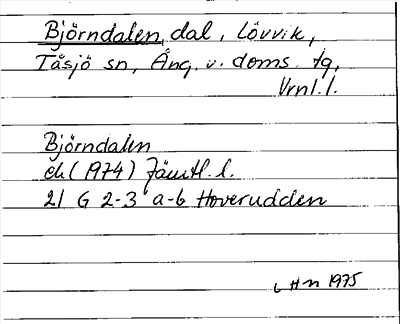 Björndalen, dal, Lövvik,
Tåsjö sn, Ång. v. doms. tg,
Vrnl. l.
Björndalen
ek (1974) Jämtl. l.
21 G 2-3 a-b Hoverudden
Hn 1975